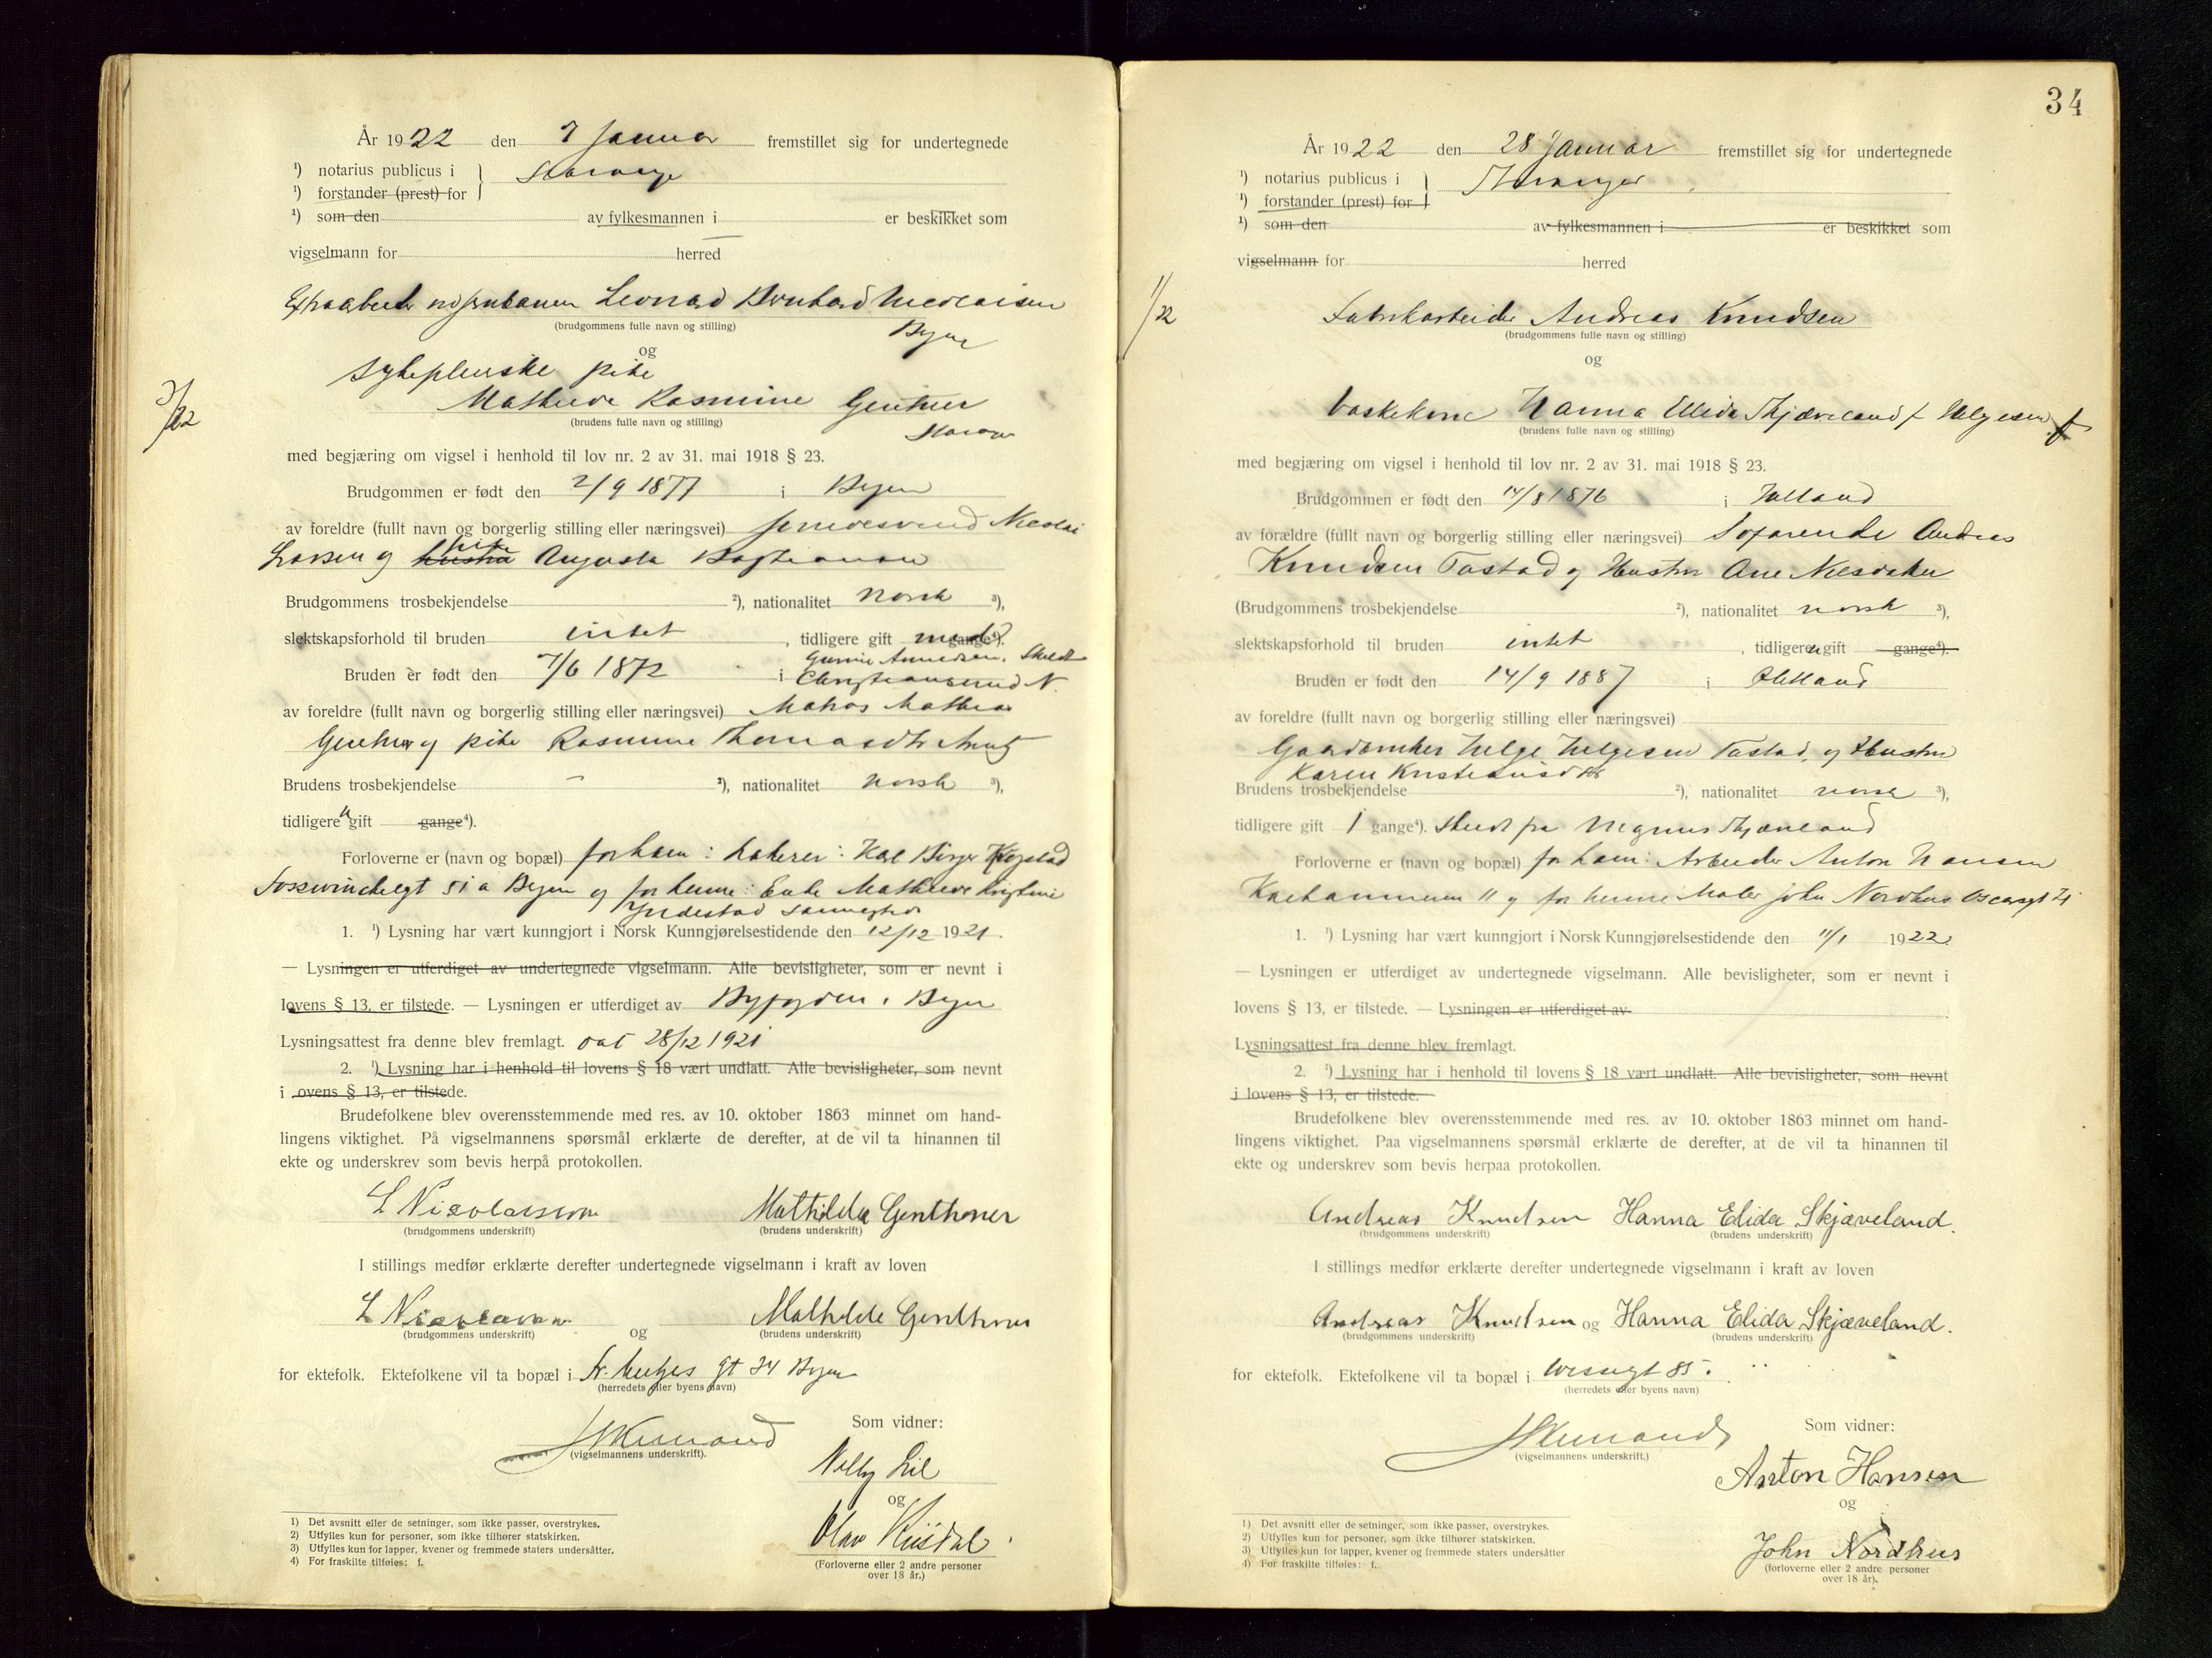 År 1922 den 7 Januar fremstillet sig for undertegnede
¹) notarius publicus i
¹) forstander (prest) for
¹) som den av fylkesmannen i er beskikket som
vigselmann for herred
(brudgommens fulle navn og stilling)
Bergen
og
pike
Rasmine
(brudens fulle navn og stilling)
3/22
med begjæring om vigsel i henhold til lov nr. 2 av 31. mai 1918 § 23.
Brudgommen er født den 2/9 1877 i Bergen
av foreldre (fullt navn og borgerlig stilling eller næringsvei) Nicolai
Larsen og hustru pike Augusta
Brudgommens trosbekjendelse ²), nationalitet norsk ³),
slektskapsforhold til bruden intet , tidligere gift gange⁴).
Bruden er født den 7/6 1872 i Christiansund N.
av foreldre (fullt navn og borgerlig stilling eller næringsvei) Matros Mathias
og pike Rasmine
Brudens trosbekjendelse - ²), nationalitet norsk ³),
tidligere u gift gange⁴).
Forloverne er (navn og bopæl) for ham: Karl Birger
51 a Bergen og for henne: Enke Mathilde
1. ¹) Lysning har vært kunngjort i Norsk Kunngjørelsestidende den 12/12 1921.
— Lysningen er utferdiget av undertegnede vigselmann. Alle bevisligheter, som er nevnt i
lovens § 13, er tilstede. — Lysningen er utferdiget av Byfogden i Bergen
Lysningsattest fra denne blev fremlagt. dat 28/12 1921
2. ¹) Lysning har i henhold til lovens § 18 vært undlatt. Alle bevisligheter, som nevnt
i ovens § 13, er tilstede.
Brudefolkene blev overensstemmende med res. av 10. oktober 1863 minnet om hand-
lingens viktighet. På vigselmannens spørsmål erklærte de derefter, at de vil ta hinannen til
ekte og underskrev som bevis herpå protokollen.
L Nicolaissen Mathilde Genthner
(brudgommens underskrift) (brudens underskrift)
I stillings medfør erklærte derefter undertegnede vigselmann i kraft av loven
L Nicolaissen og Mathilde Genthner
(brudgommens underskrift) (brudens underskrift)
for ektefolk. Ektefolkene vil ta bopæl i gt 34 Bergen
(herredets eller byens navn)
Som vidner:
(vigselmannens underskrift).
Nelly
og
Olav
(Forloverne eller 2 andre personer
over 18 år.)
1) Det avsnitt eller de setninger, som ikke passer, overstrykes.
2) Utfylles kun for personer, som ikke tilhører statskirken.
3) Utfylles kun for lapper, kvener og fremmede staters undersåtter.
4) For fraskilte tilføies: f.
34
År 1922 den 28 Januar fremstillet sig for undertegnede
¹) notarius publicus i Stavanger
¹) forstander (prest) for
¹) som den av fylkesmannen i er beskikket som
vigselmann for herred
1/22
Fabrikarbeider Andreas Knudsen
(brudgommens fulle navn og stilling)
og
Vaskekone Hanna Elida Skjæveland f Helgesen f
(brudens fulle navn og stilling)
med begjæring om vigsel i henhold til lov nr. 2 av 31. mai 1918 § 23.
Brudgommen er født den 14/8 1876 i Jelland
av forældre (fullt navn og borgerlig stilling eller næringsvei) Sofarende Andreas
Knudsen Tastad og Hustru Ane Nilsdatter
(Brudgommens trosbekjendelse ²), nationalitet norsk ³),
slektskapsforhold til bruden intet , tidligere u gift gange⁴).
Bruden er født den 14/9 1887 i
av foreldre (fullt navn og borgerlig stilling eller næringsvei)
Gaardbruker Helge Helgesen Tastad, og Hustru
Karen
Brudens trosbekjendelse ²), nationalitet norsk ³),
tidligere gift 1 gange⁴). skilt fra Magnus Skjæveland
Forloverne er (navn og bopæl) for ham: Arbeider Anton Hansen
11 og for henne Maler John Nordhus
1. ¹) Lysning har vært kunngjort i Norsk Kunngjørelsestidende den 11/1 1922.
— Lysningen er utferdiget av undertegnede vigselmann. Alle bevisligheter, som er nevnt i
lovens § 13, er tilstede. — Lysningen er utferdiget av
Lysningsattest fra denne blev fremlagt.
2. ¹) Lysning har i henhold til lovens § 18 vært undlatt. Alle bevisligheter, som nevnt
i lovens § 13, er tilstede.
Brudefolkene blev overensstemmende med res. av 10. oktober 1863 minnet om hand-
lingens viktighet. Paa vigselmannens spørsmål erklærte de derefter, at de vil ta hinannen til
ekte og underskrev som bevis herpaa protokollen.
Andreas Knudsen Hanna Elida Skjæveland.
(brudgommens underskrift) (brudens underskrift)
I stillings medfør erklærte derefter undertegnede vigselmann i kraft av loven
Andreas Knudsen og Hanna Elida Skjæveland.
(brudgommens underskrift) (brudens underskrift)
for ektefolk. Ektefolkene vil ta bopæl i 85.
(herredets eller byens navn)
Som vidner:
(vigselmannens underskrift.)
Anton Hansen
og
John Nordhus
(forloverne eller 2 andre personer
over 18 år).
1) Det avsnitt eller de setninger, som ikke passer, overstrykes.
2) Utfylles kun for personer, som ikke tilhører statskirken.
3) Utfylles kun for lapper, kvener og fremmede staters undersåtter
4) For fraskilte tilføies: f.